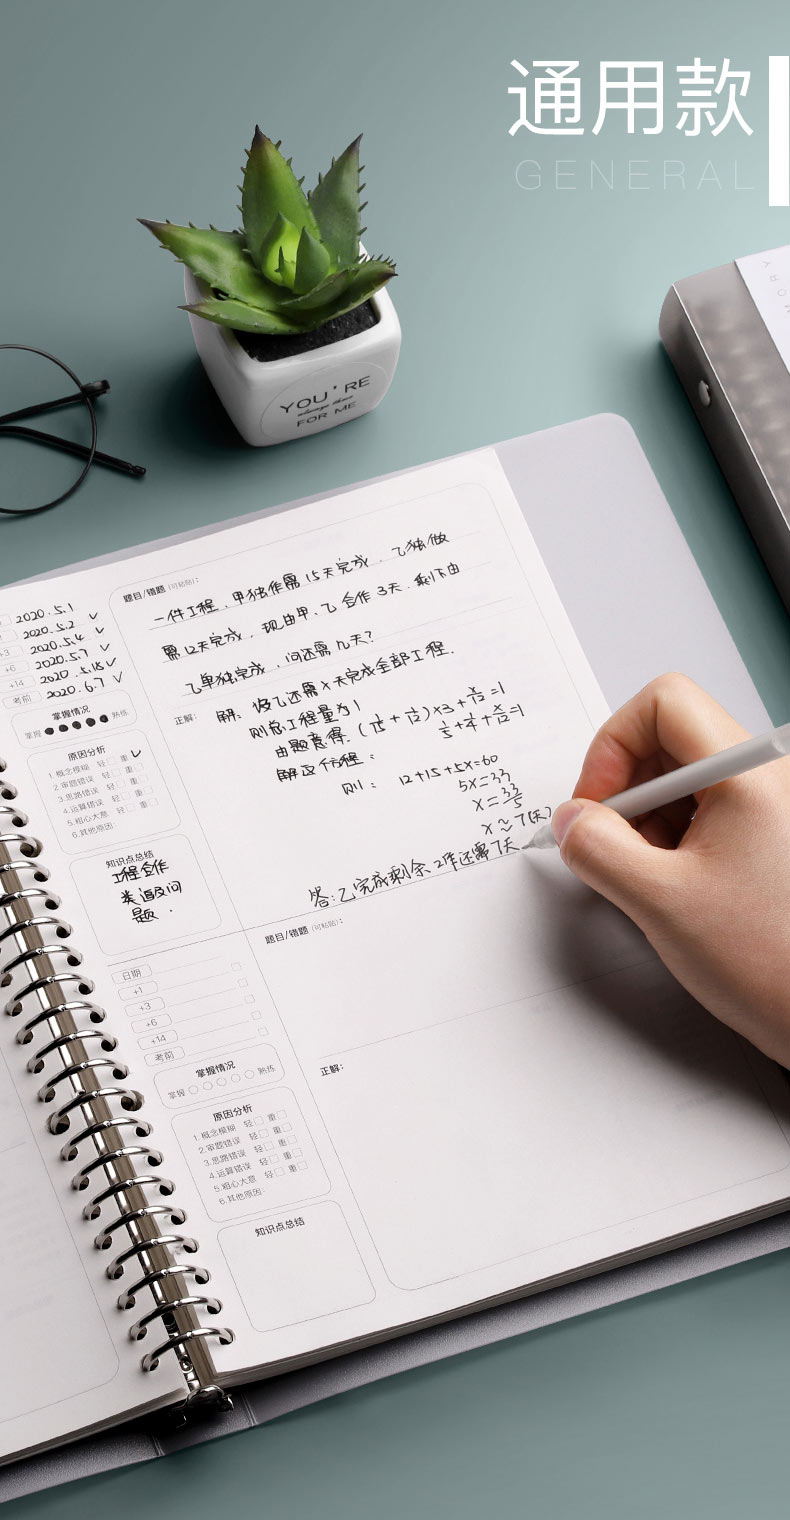 通用款
GENERAL
YOU'RE
always there
FOR ME
2020.5.1
2020.5.2 ✓
+3 2020.5.4 ✓
+6 2020.5.7 ✓
+14 2020.5.15 ✓
考前 2020.6.7 ✓
掌握情况
掌握 熟练
原因分析
1.概念模糊 轻 重 ✓
2.审题错误 轻 重
3.思路错误 轻 重
4.运算错误 轻 重
5.粗心大意 轻 重
6.其他原因
知识点总结
工程合作
类追及问
题.
题目/错题(可粘贴):
一件工程,甲独作需15天完成,乙独做
需12天完成,现由甲、乙合作3天,剩下由
乙单独完成,问还需几天?
正解: 解:设乙还需x天完成全部工程.
则总工程量为1
由题意得:(1/15+1/12)×3+x/12=1
解这方程: 1/5+1/4+x/12=1
则: 12+15+5x=60
5x=33
x=33/5
x≈7(天)
答:乙完成剩余工作还需7天
日期
+1
+3
+6
+14
考前
掌握情况
掌握 熟练
原因分析
1.概念模糊 轻 重
2.审题错误 轻 重
3.思路错误 轻 重
4.运算错误 轻 重
5.粗心大意 轻 重
6.其他原因
知识点总结
题目/错题(可粘贴):
正解: